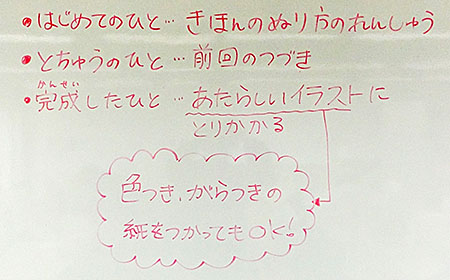 •はじめてのひと…きほんのぬり方のれんしゅう
•とちゅうのひと…前回のつづき
かんせい
•完成したひと…あたらしいイラストに
とりかかる
色つき、がらつきの
紙をつかってもOK!